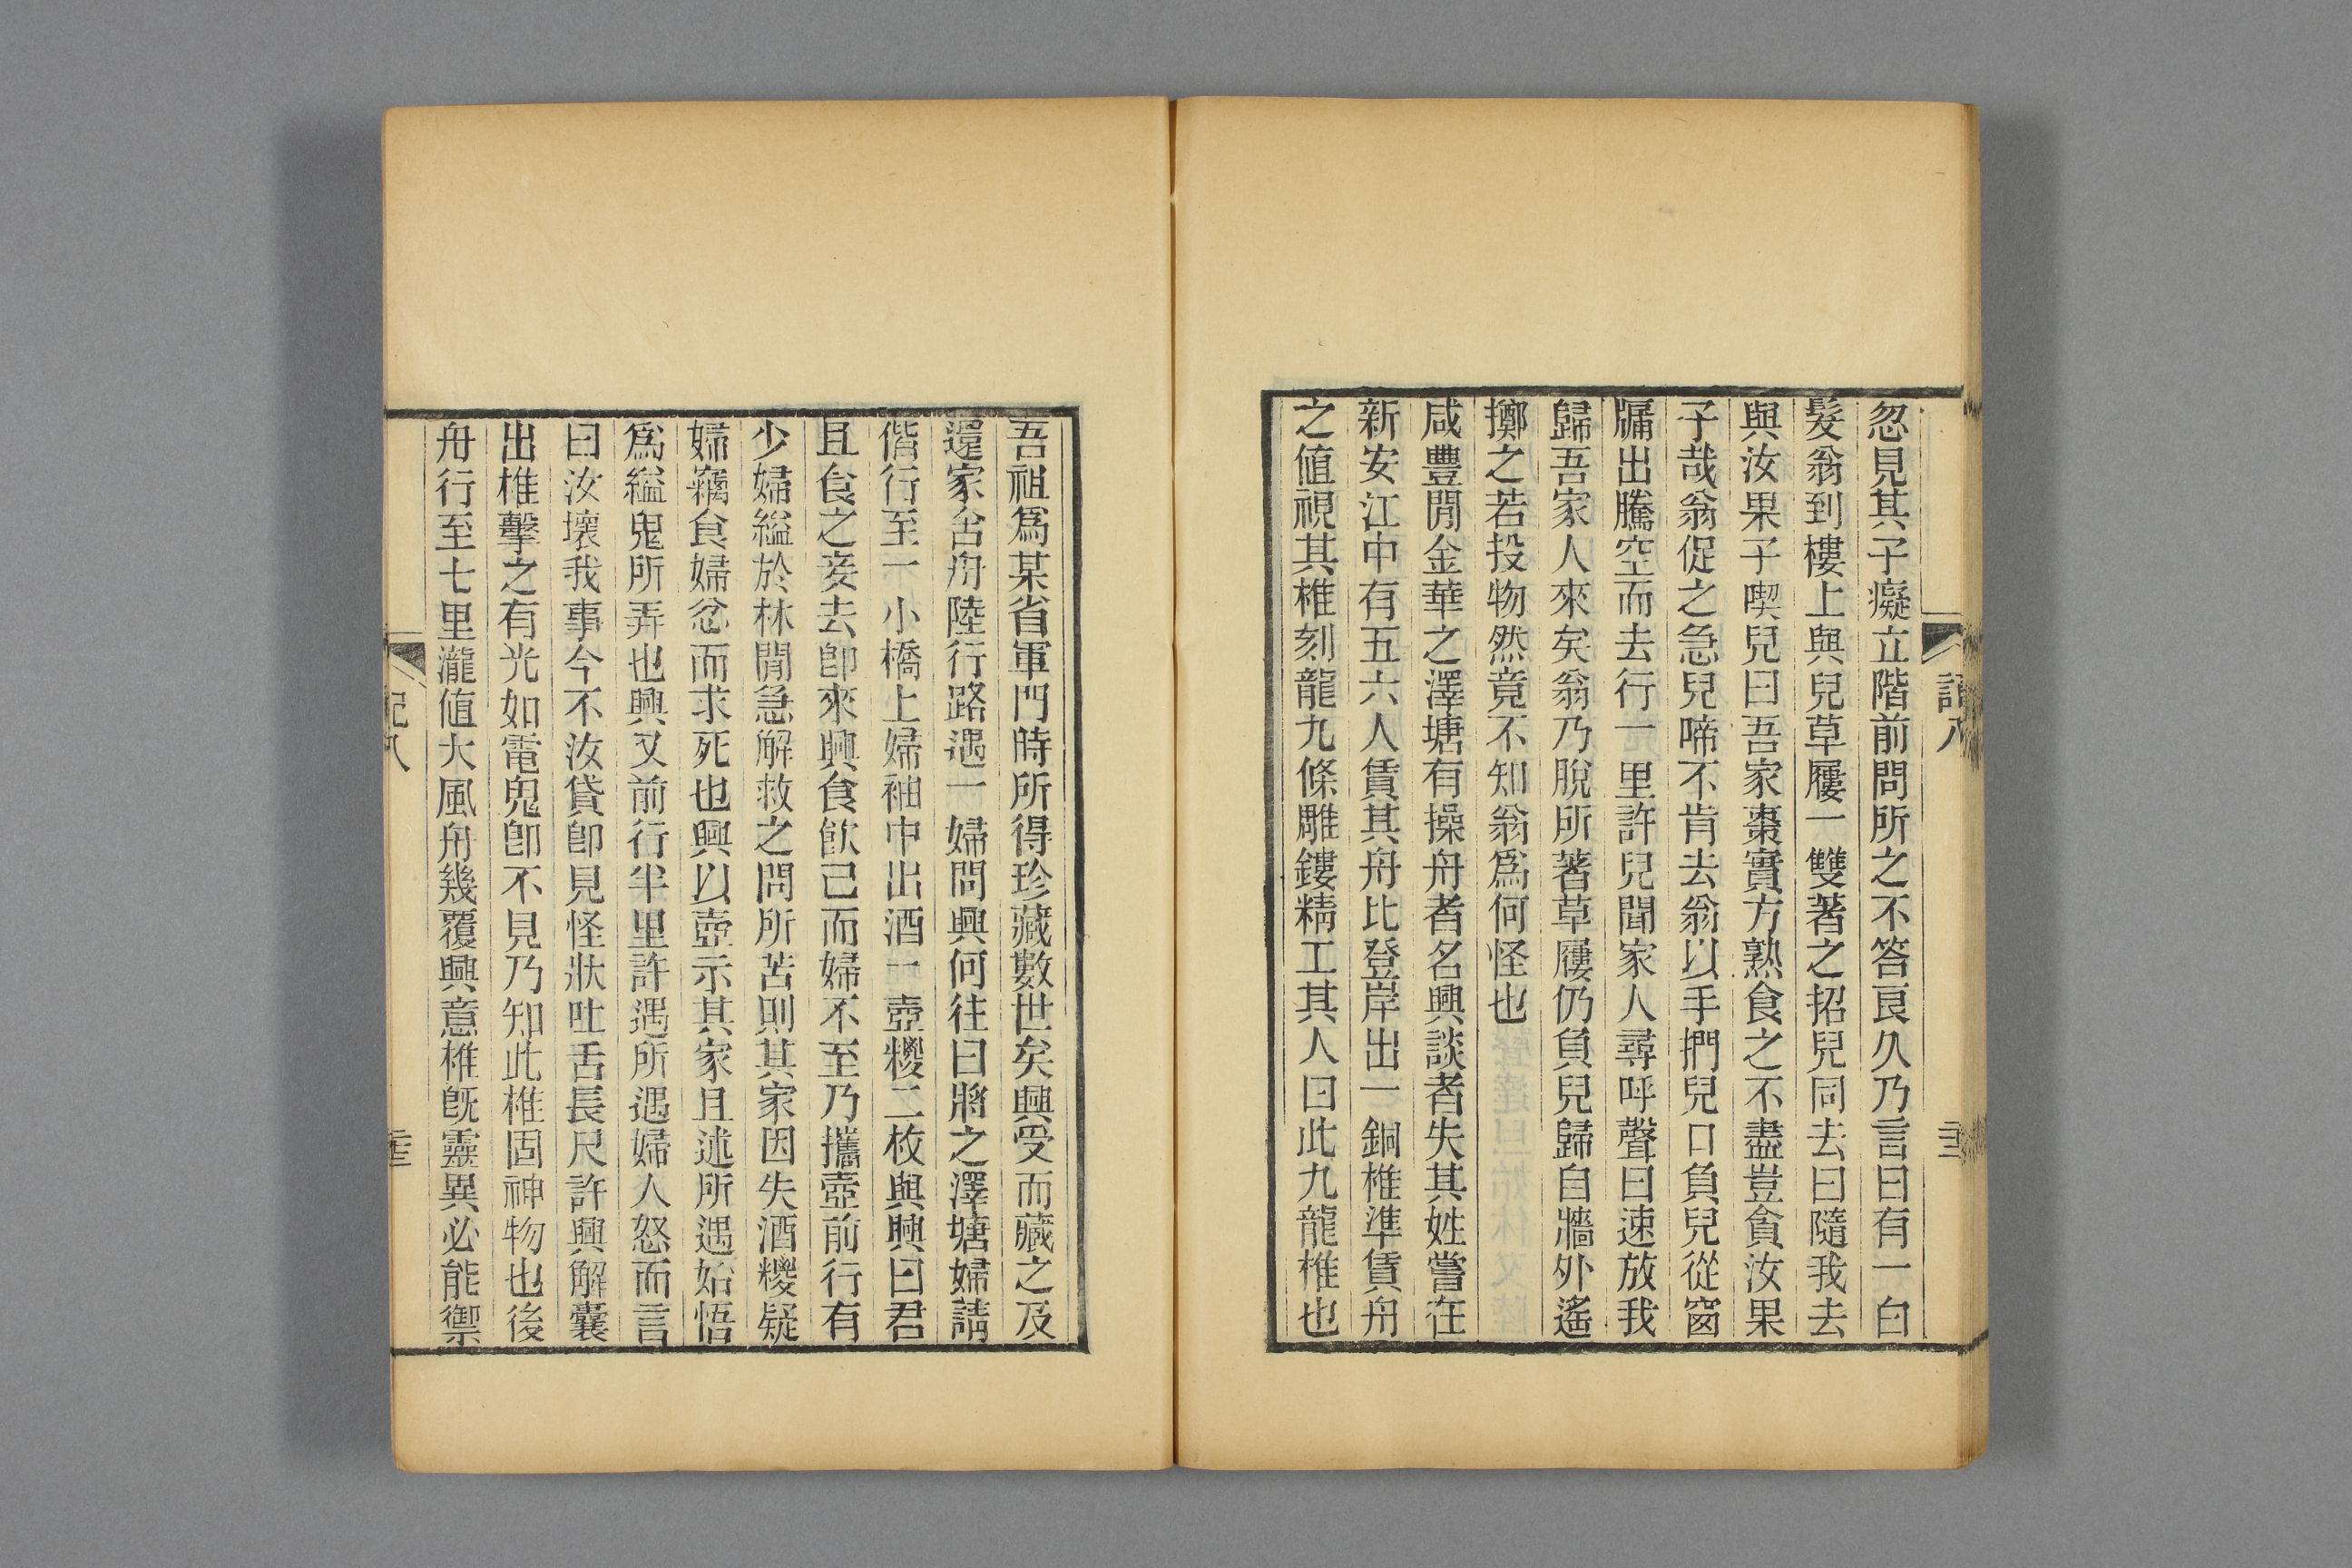 忽見其子癡立階前問所之不答良久乃言曰有一白
髮翁到樓上與兒草屨一雙著之招兒同去曰隨我去
與汝果子喫兒曰吾家棗實方熟食之不盡豈貪汝果
子哉翁促之急兒啼不肯去翁以手捫兒口負兒從窗
牖出騰空而去行一里許兒聞家人尋呼聲曰速放我
歸吾家人來矣翁乃脫所著草屨仍負兒歸自牆外遙
擲之若投物然竟不知翁爲何怪也
咸豐閒金華之澤塘有操舟者名興談者失其姓嘗在
新安江中有五六人賃其舟比登岸出一銅椎準賃舟
之値視其椎刻龍九條雕鏤精工其人曰此九龍椎也
吾祖爲某省軍門時所得珍藏數世矣興受而藏之及
還家舍舟陸行路遇一婦問興何往曰將之澤塘婦請
偕行至一小橋上婦袖中出酒一壺糉二枚與興曰君
且食之妾去卽來興食飮已而婦不至乃攜壺前行有
少婦縊於林閒急解救之問所苦則其家因失酒糉疑
婦竊食婦忿而求死也興以壺示其家且述所遇始悟
爲縊鬼所弄也興又前行半里許遇所遇婦人怒而言
曰汝壞我事今不汝貸卽見怪狀吐舌長尺許興解囊
出椎擊之有光如電鬼卽不見乃知此椎固神物也後
舟行至七里瀧値大風舟幾覆興意椎旣靈異必能禦
記八